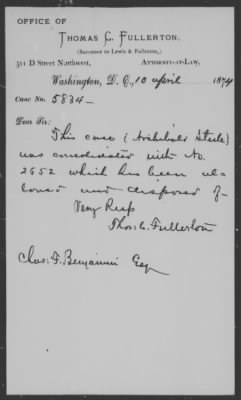 OFFICE OF
THOMAS C. FULLERTON,
(Successor to Lewis & Fullerton,)
311 D Street Northwest, ATTORNEY-AT-LAW,
Washington, D. C., 10 april 1874
CASE No. 5834—
Dear Sir:
This case (Archibald Steele)
was consolidated with No.
2652 which has been al-
lowed and disposed of—
Very Resp
Thos. C. Fullerton
Chas: F. Benjamin Esq